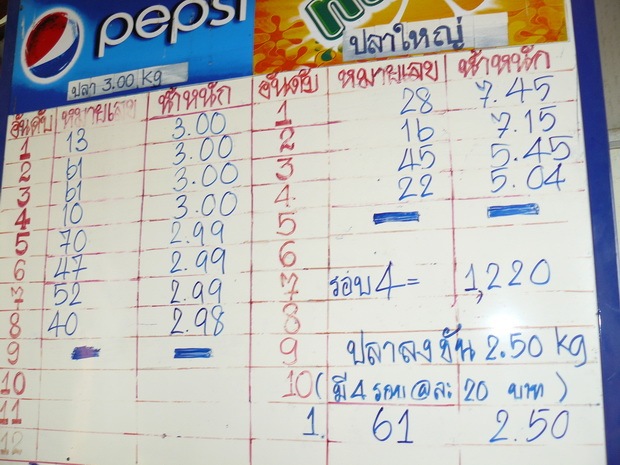 pepsi
ปลา 3.00 Kg
ปลาใหญ่
อันดับ หมายเลข น้ำหนัก
1 13 3.00
2 61 3.00
3 61 3.00
4 10 3.00
5 70 2.99
6 47 2.99
7 52 2.99
8 40 2.98
9
10
11
12
อันดับ หมายเลข น้ำหนัก
1 28 7.45
2 16 7.15
3 45 5.45
4 22 5.04
5
6
7 รอบ 4 = 1,220
8
9 ปลาลงขัน 2.50 kg
10 (มี 4 รอบ @ละ 20 บาท)
1. 61 2.50